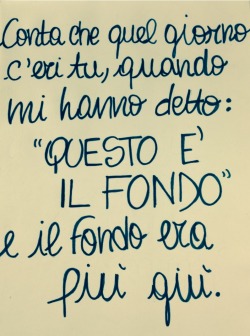 Conta che quel giorno
c'eri tu, quando
mi hanno detto:
"QUESTO E'
IL FONDO"
e il fondo era
più giù.